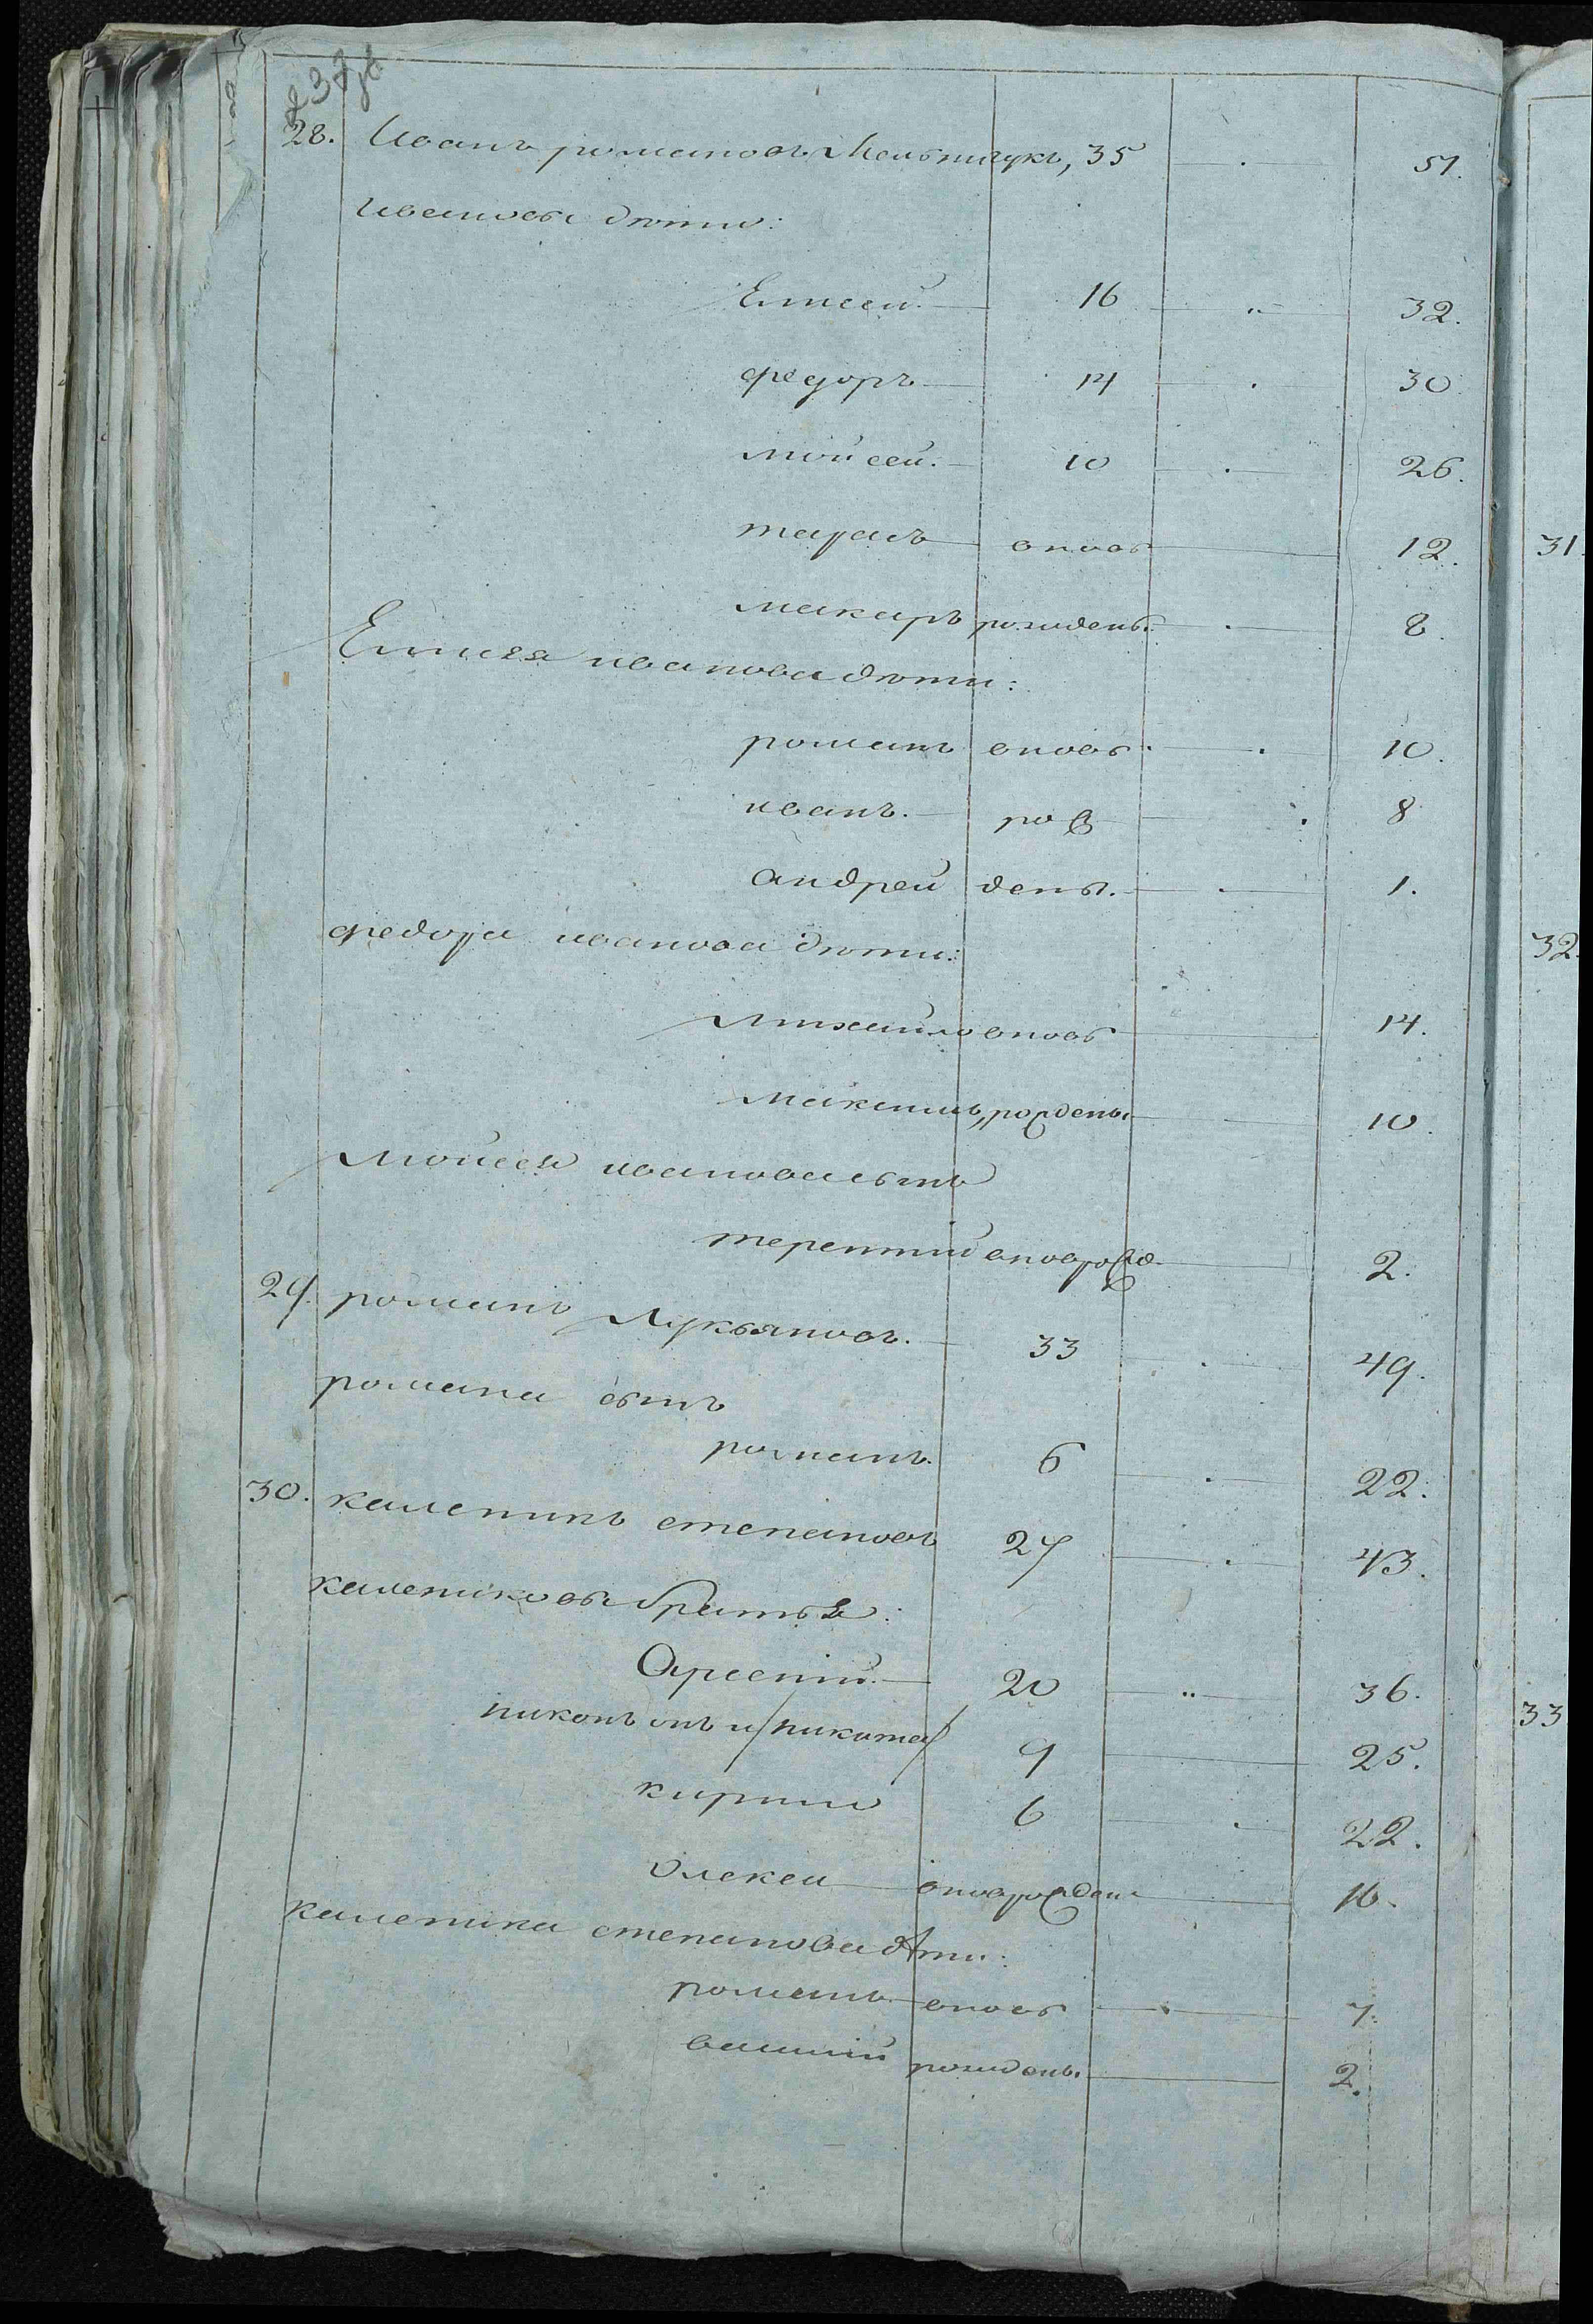 28. Иванъ романовъ Мельничукъ, 35 51.
ивановы дѣти:
Елисей. 16 32.
федоръ 14 30
мойсей. 10 26.
тарасъ вновь 12.
макаръ рожденъ. 8.
Елисея иванова дѣти:
романъ вновь 10.
иванъ. рож 8
андрей денъ. 1.
федора иванова дѣти:
михайло вновь 14.
максимъ, рожденъ. 10.
мойсея иванова сынъ
терентий вноврожд. 2.
29. романъ Лукьяновъ. 33 49.
романа сынъ
романъ. 6 22.
30. каленикъ степановъ 27 43.
калениковы братья:
Арсений. 20 36.
никонъ онъ и /никита/ 9 25.
кирило 6 22.
Олексей вноврожден 16.
каленика степанова дѣти:
романъ вновь 7.
василий рожденъ. 2.
31.
32.
33